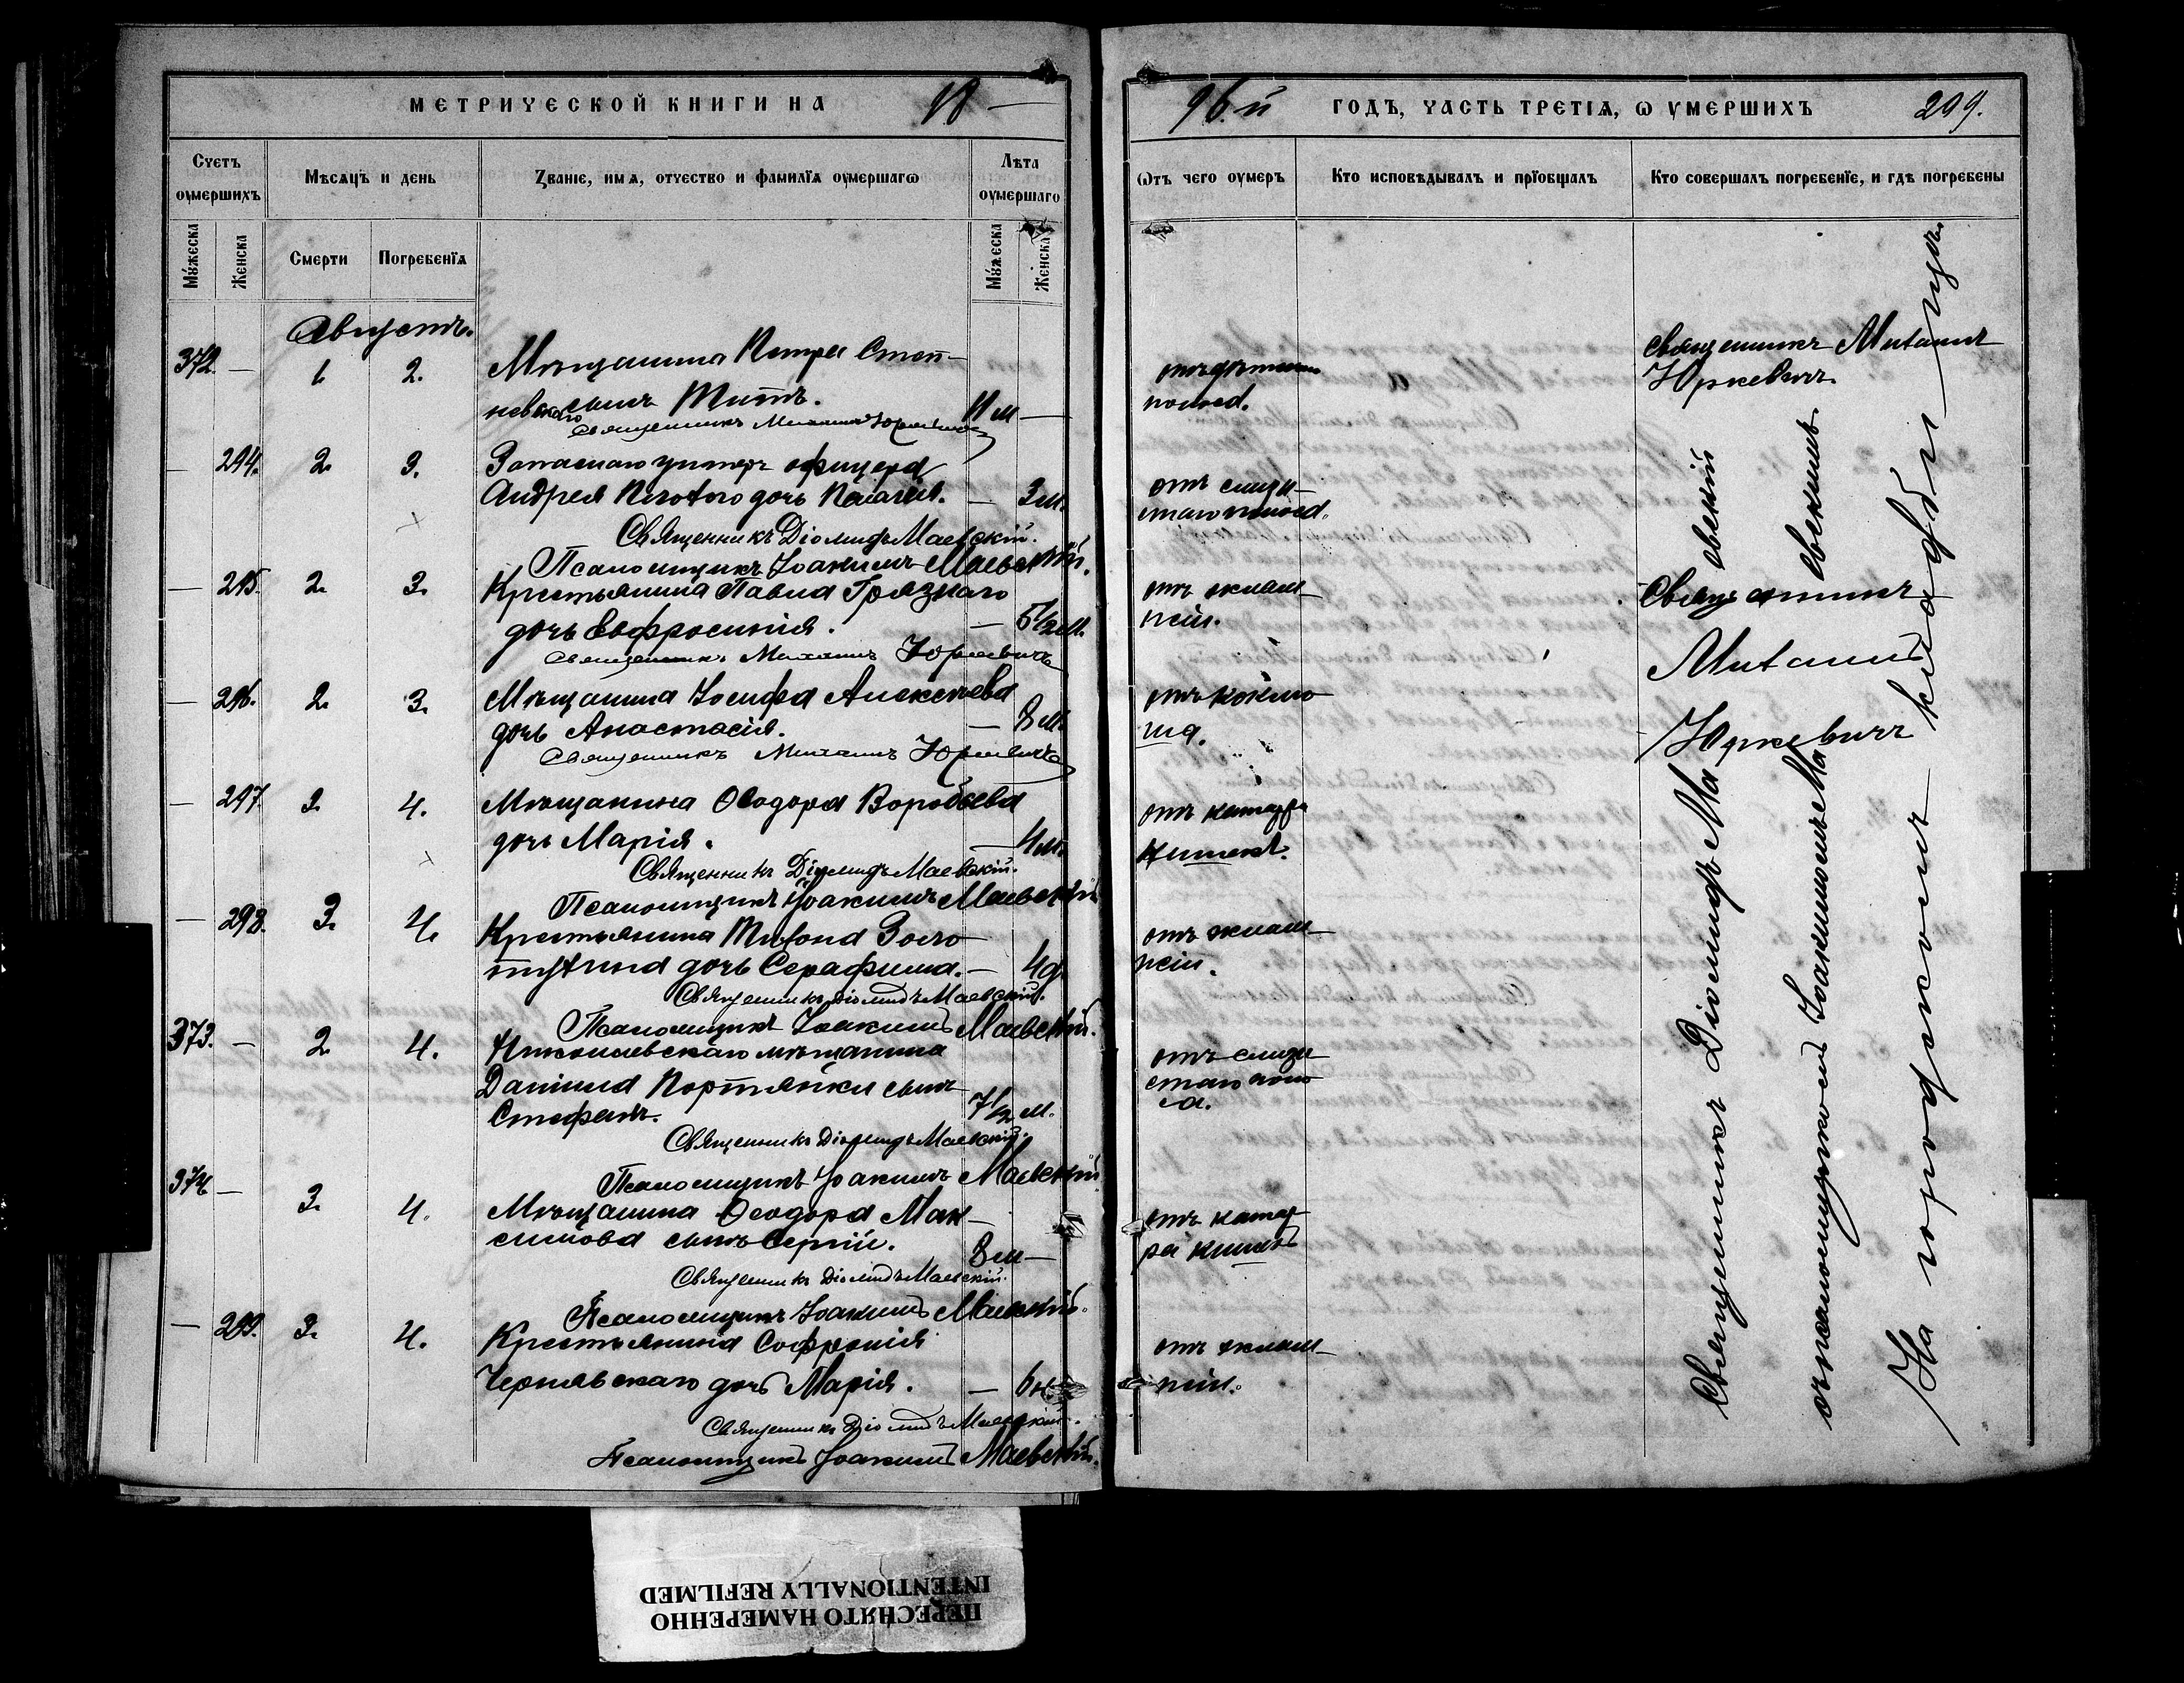 МЕТРИЧЕСКОЙ КНИГИ НА 18 —
96.й ГОДЪ, ЧАСТЬ ТРЕТІѦ, Ѡ УМЕРШИХЪ 299.
Счетъ оумершихъ
Мѣсяцъ и день
Званіе, имѧ, отчество и фамиліѧ оумершагѡ
Лѣта оумершаго
Ѿтъ чего оумеръ
Кто исповѣдывалъ и прїобщалъ
Кто совершалъ погребенїе, и гдѣ погребены
Мужеска
Женска
Смерти
Погребенїѧ
Мужеска
Женска
Августъ.
372. — 1. 2. Мѣщанина Петра Степ-
невскаго сынъ Титъ. 11 м —
Священникъ Михаилъ Юркевичъ
— 294. 2. 3. Запаснаго унтеръ офицера
Андрея дочь — 3 м.
Священникъ Діомидъ Маевскій.
Псаломщикъ Іоакимъ Маевскій.
— 295. 2. 3. Крестьянина Павла Грязнаго
дочь Евфросинія. — 5½ м.
Священникъ Михаилъ Юркевичъ
— 296. 2. 3. Мѣщанина Іосифа Алексѣева
дочь Анастасія. — 8 м.
Священникъ Михаилъ Юркевичъ
— 297. 3. 4. Мѣщанина Ѳеодора Воробьева
дочь Марія. — 4 м.
Священникъ Діомидъ Маевскій.
Псаломщикъ Іоакимъ Маевскій
— 298. 3. 4. Крестьянина
дочь Серафима. — 4 д.
Священникъ Діомидъ Маевскій.
Псаломщикъ Іоакимъ Маевскій.
373. — 2. 4. Николаевскаго мѣщанина
Даніила Портянки сынъ
Стефанъ. 7½ м.
Священникъ Діомидъ Маевскій.
Псаломщикъ Іоакимъ Маевскій
374. — 3. 4. Мѣщанина Ѳеодора Мак-
симова сынъ Сергій. 8 м —
Священникъ Діомидъ Маевскій.
Псаломщикъ Іоакимъ Маевскій.
— 299. 3. 4. Крестьянина Софронія
Чернявскаго дочь Марія. — 6 н
Священникъ Діомидъ Маевскій.
Псаломщикъ Іоакимъ Маевскій.
отъ
поноса.
отъ слизи-
стаго поноса.
отъ эклам-
псіи.
отъ коклю
ша.
отъ катарра
кишекъ.
отъ эклам-
псіи.
отъ слизи
стаго поно
са.
отъ катар
ра кишекъ
отъ эклам-
псіи.
Священникъ Михаилъ
Юркевичъ.
Священникъ
Михаилъ
Юркевичъ
Священникъ Діомидъ Маевскій
съ псаломщикомъ Іоакимомъ Маевскимъ
На городскомъ кладбищѣ.
ПЕРЕСНЯТО НАМЕРЕННО
INTENTIONALLY REFILMED